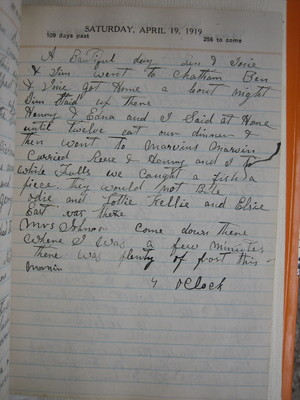 SATURDAY, APRIL 19, 1919
109 days past 256 to come
A Beautiful day Ben & Josie
& Jim went to Chatham Ben
& Josie got Home a bout night
Jim Staid up there
Henny & Edna and I Said at Home
until twelve eat our dinner &
then went to Marvins Marwin
Carried Reese & Henny and I to
White Falls we caught a fish a
piece. They would not Bite
odie and Lottie Trellie and Elsie
East was there
Mrs Johnson come down there
where I was a few minutes
there was plenty of frost this
mornin
4 oClock